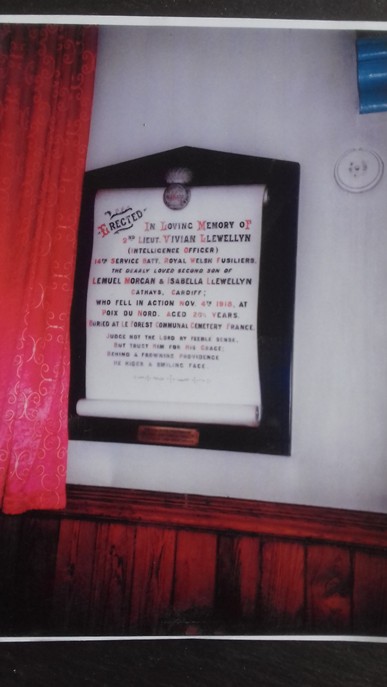 Erected
In Loving Memory of
2nd Lieut. Vivian Llewellyn
(Intelligence Officer)
14th Service Batt. Royal Welsh Fusiliers.
The dearly loved second son of
Lemuel Morgan & Isabella Llewellyn
Cathays, Cardiff;
who fell in action Nov. 4th 1918, at
Poix du Nord. Aged 25½ years.
Buried at Le Forest Communal Cemetery France.
Judge not the Lord by feeble sense,
But trust Him for His Grace;
Behind a frowning providence
He hides a smiling face.